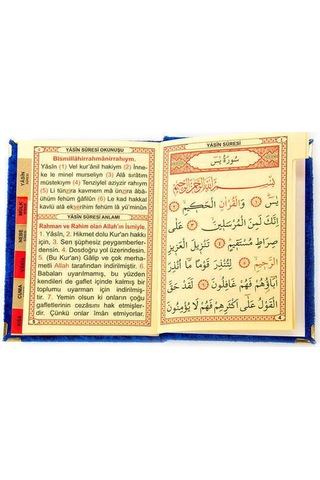 YÂSÎN SÛRESİ OKUNUŞU
Bismillâhirrahmânirrahıym.
Yâsîn (1) Vel kur'ânil hakiym (2) İnne-
ke le minel murseliyn (3) Alâ sırâtim
müstekıym (4) Tenziylel aziyzir rahıym
(5) Li tünzira kavmem mâ ünzira âbâ-
ühüm fehüm ğâfilûn (6) Le kad hakkal
kavlü alâ ekserihim fehüm lâ yü'minûn
YÂSÎN SÛRESİ ANLAMI
Rahman ve Rahim olan Allah'ın İsmiyle.
1. Yâsîn, 2. Hikmet dolu Kur'an hakkı
için, 3. Sen şüphesiz peygamberler-
densin. 4. Dosdoğru yol üzerindesin.
5. (Bu Kur'an) Gâlip ve çok merha-
metli Allah tarafından indirilmiştir. 6.
Babaları uyarılmamış, bu yüzden
kendileri de gaflet içinde kalmış bir
toplumu uyarman için indirilmiş-
tir. 7. Yemin olsun ki onların çoğu
gafletlerinin cezasını hak etmişler-
dir. Çünkü onlar iman etmiyorlar.
YÂSÎN
MÜLK
NEBE
CUMA
YÂSÎN SÛRESİ
سُورَةُ يٰسٓ
بِسْمِ اللهِ الرَّحْمٰنِ الرَّحِيمِ
يٰسٓ ﴿١﴾ وَالْقُرْاٰنِ الْحَكِيمِ ﴿٢﴾
اِنَّكَ لَمِنَ الْمُرْسَلِينَ ﴿٣﴾ عَلٰى
صِرَاطٍ مُسْتَقِيمٍ ﴿٤﴾ تَنْزِيلَ الْعَزِيزِ
الرَّحِيمِ ﴿٥﴾ لِتُنْذِرَ قَوْمًا مَٓا اُنْذِرَ
اٰبَٓاؤُهُمْ فَهُمْ غَافِلُونَ ﴿٦﴾ لَقَدْ حَقَّ
الْقَوْلُ عَلٰٓى اَكْثَرِهِمْ فَهُمْ لَا يُؤْمِنُونَ